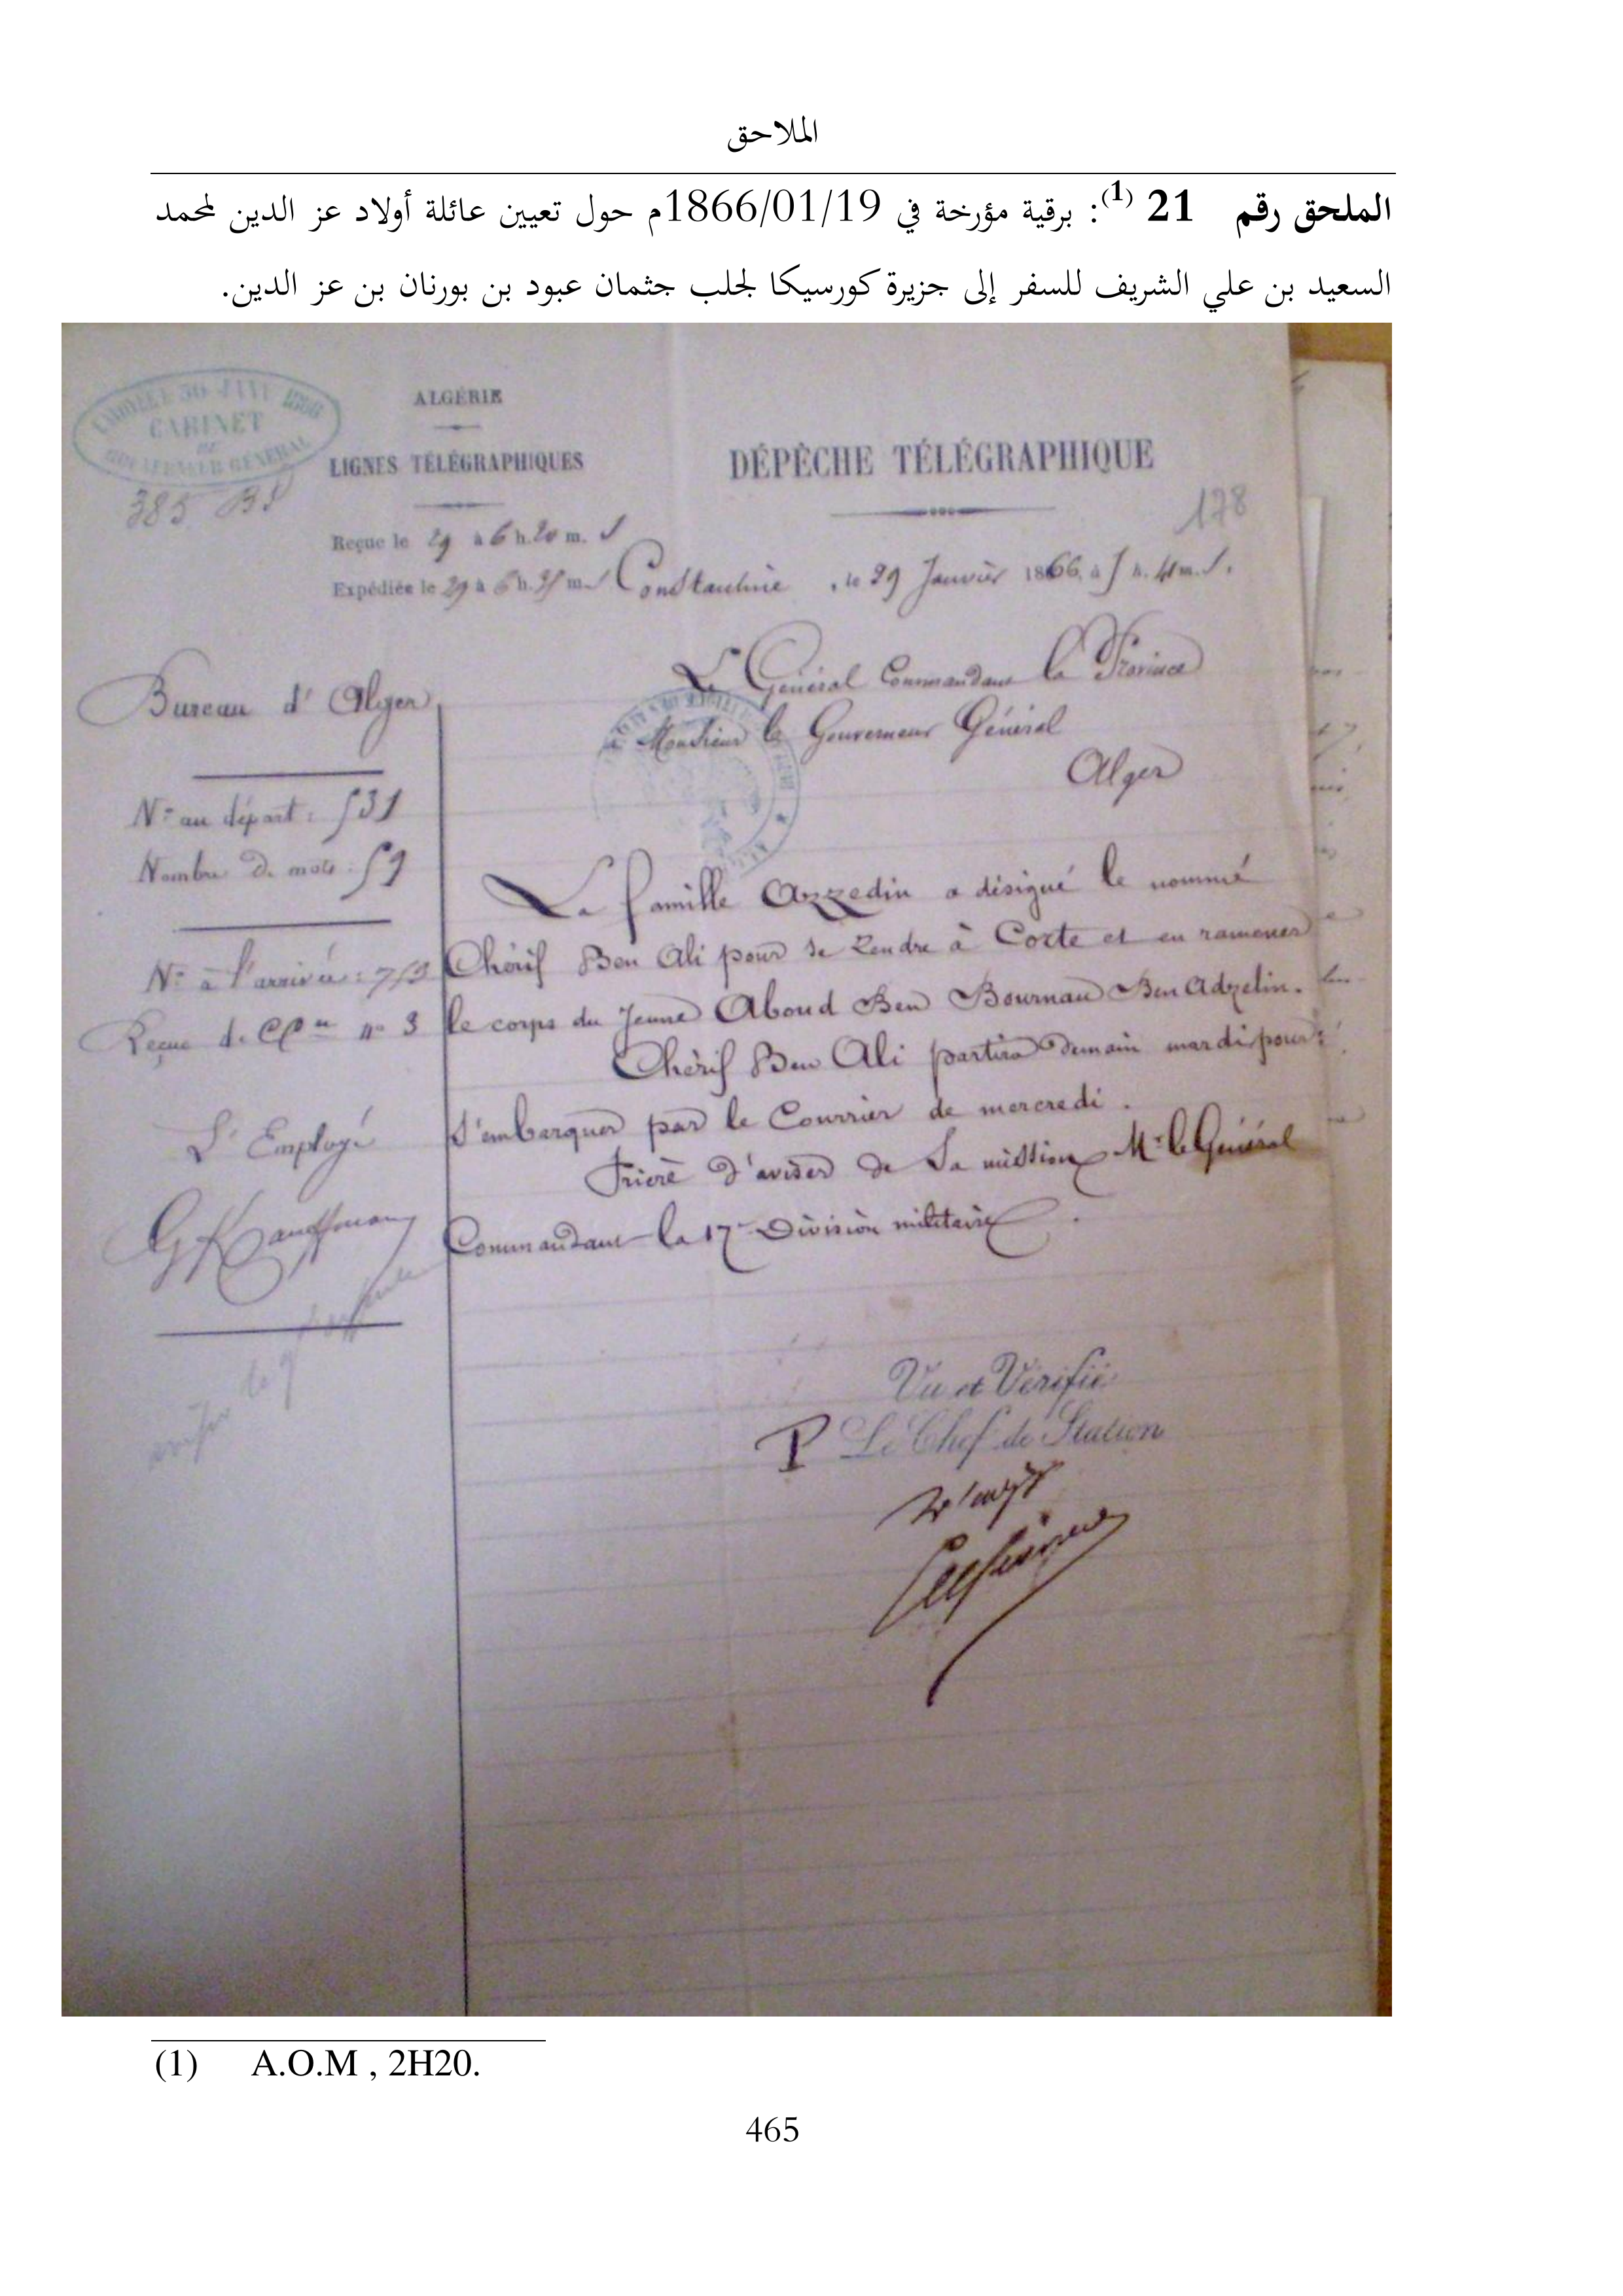 الملاحق
الملحق رقم 21 (1): برقية مؤرخة في 1866/01/19م حول تعيين عائلة أولاد عز الدين لمحمد
السعيد بن علي الشريف للسفر إلى جزيرة كورسيكا لجلب جثمان عبود بن بورنان بن عز الدين.
CABINET
GÉNÉRAL
385
ALGÉRIE
LIGNES TÉLÉGRAPHIQUES
DÉPÊCHE TÉLÉGRAPHIQUE
178
Reçue le 29 à 6 h. 20 m. S
Expédiée le 29 à 6 h. m. S Constantine, le 29 Janvier 1866, à 5 h. 41 m. S.
Bureau d'Alger
Le Général Commandant la Province
à Monsieur le Gouverneur Général
Alger
N° au départ : 531
Nombre de mots : 59
N° à l'arrivée :
Reçue de n° 3
L'Employé
La famille Azzedin a désigné le nommé
Chérif Ben Ali pour se rendre à Corte et en ramener
le corps du jeune Aboud Ben Bournan Ben Adzelin.
Chérif Ben Ali partira demain mardi pour
s'embarquer par le Courrier de mercredi.
Prière d'aviser de sa mission Mr le Général
Commandant la 17e Division militaire.
Vu et Vérifié
P Le Chef de Station
(1) A.O.M , 2H20.
465